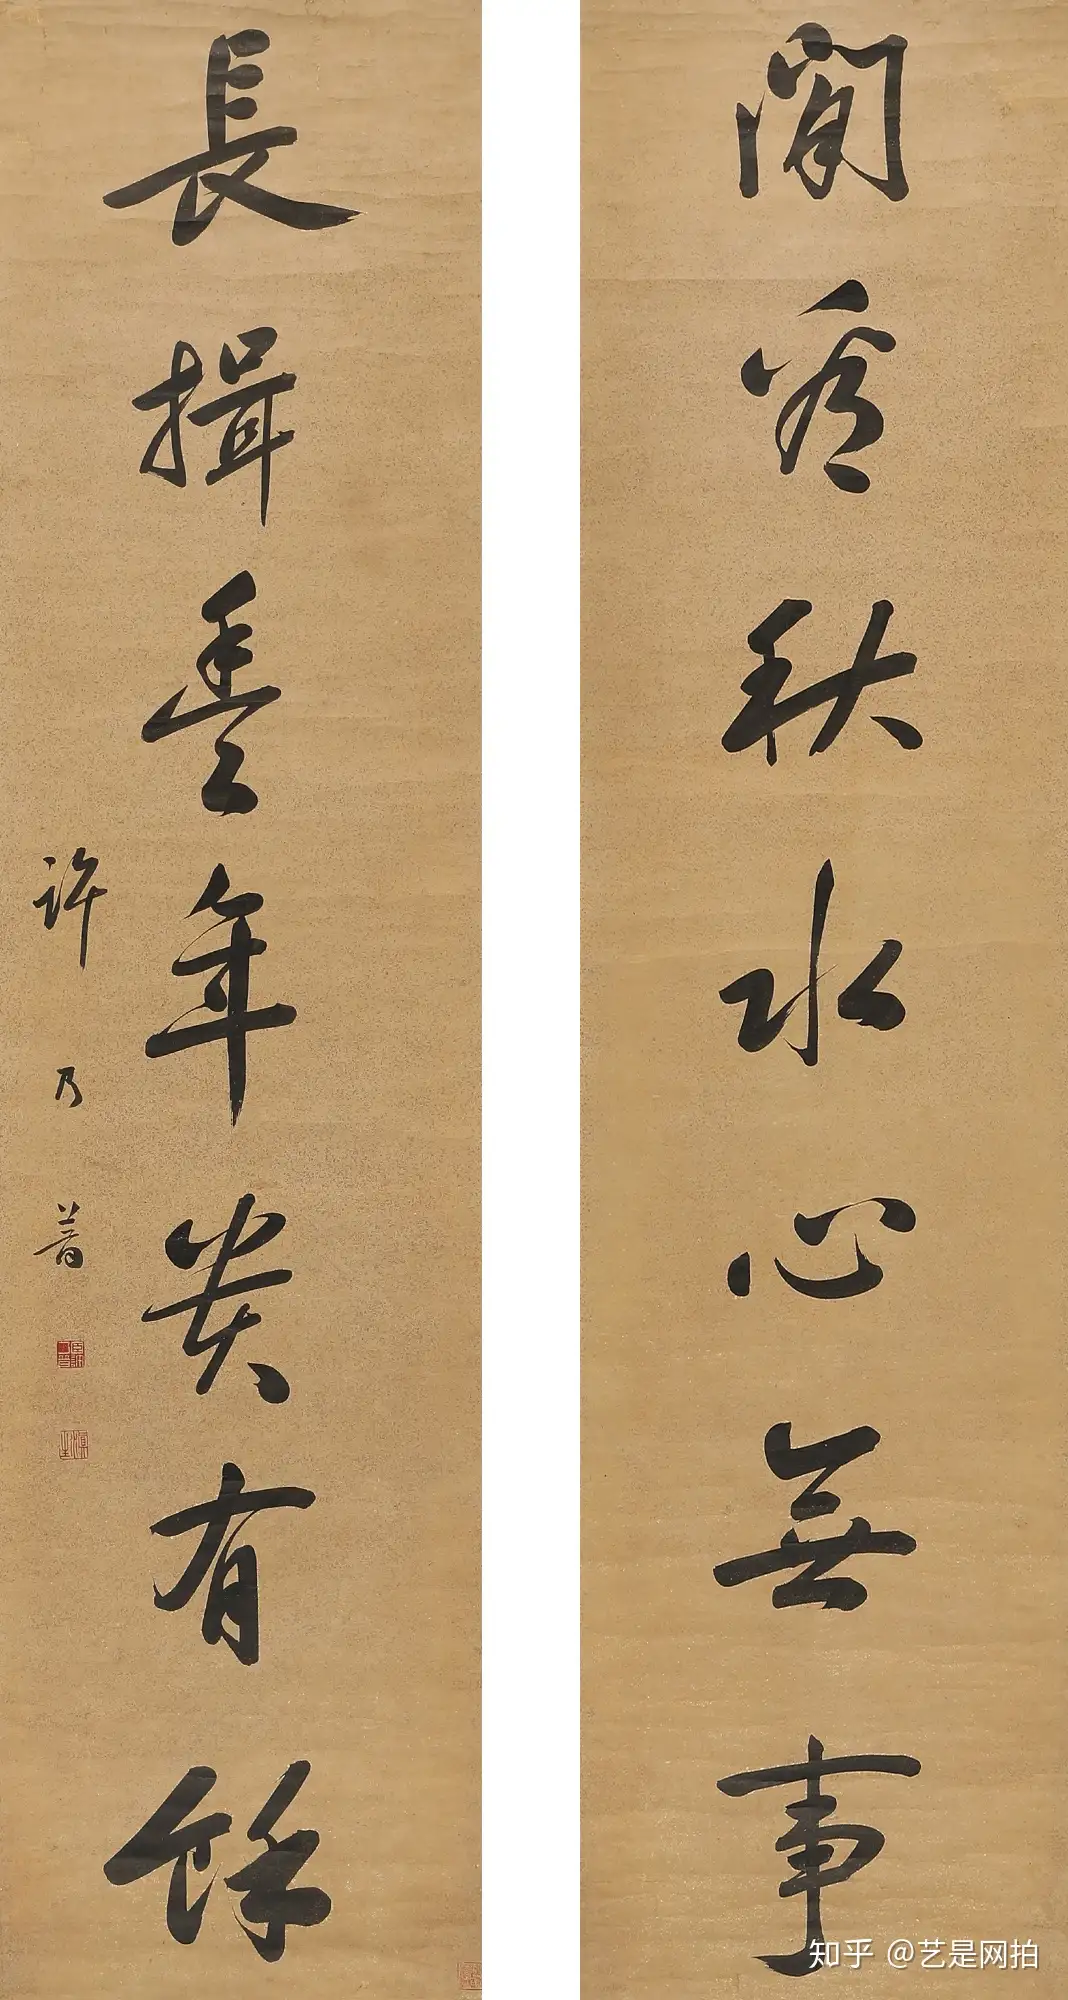 閒看秋水心無事
長揖豐年貴有餘
許乃普
知乎 @艺是网拍